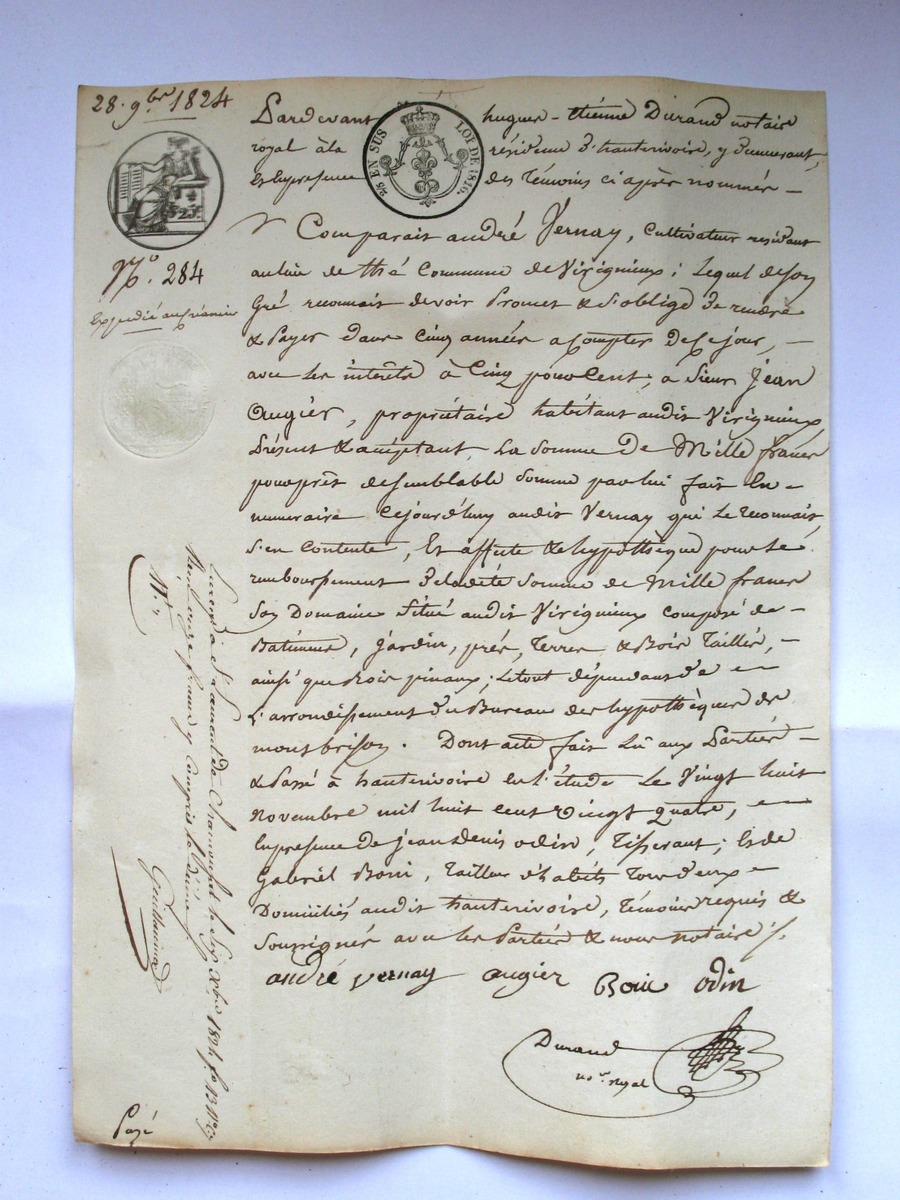 28. 9bre 1824
Pardevant hugues-étienne Durand notaire
royal à la résidence d'hauterivoire, y demeurant,
Et En presence des témoins ci après nommés —
2/5 EN SUS LOI DE 1816.
Comparait andré Vernay, Cultivateur residant
au lieu de thé Commune de Virignieux; lequel de son
Gré reconnait devoir Promet & S'oblige De rendre
& Payer dans Cinq années a Compter De Ce jour, —
avec les interêts à Cinq pour Cent, à Sieur Jean
Ougier, propriétaire habitant audit Virignieux
Présent & acceptant, La Somme De Mille francs
pour prêt de Semblable Somme par lui fait En-
numeraire Cejourd'huy audit Vernay qui Le reconnait,
S'en Contente, Et affecte & hypothèque pour le
remboursement De ladite Somme de Mille francs
Son Domaine Situé audit Virignieux Composé de-
Batiments, Jardin, prés, Terres & Bois Taillés, —
ainsi que Bois pinaux; Le tout dépendant de —
L'arrondissement Du Bureau des hypothèques de
montbrison. Dont acte fait Lû aux Parties —
& Passé à hauterivoire En l'étude Le Vingt huit
Novembre mil huit cent Vingt quatre, —
En presence De jean denis odin, Tisserant; Et de
Gabriel Boni, Tailleur d'habits Tous deux —
Domiciliés audit hauterivoire, témoins requis &
Soussignés avec les Parties & nous notaire ./.
andré vernay ougier Boni odin
Durand
nore royal
No. 284
Expédié au créancier
Enregistré à St Laurent de Chamousset le Six Xbre 1824, fo 13
Reçu onze francs y compris le dixième
Guillermin
Payé